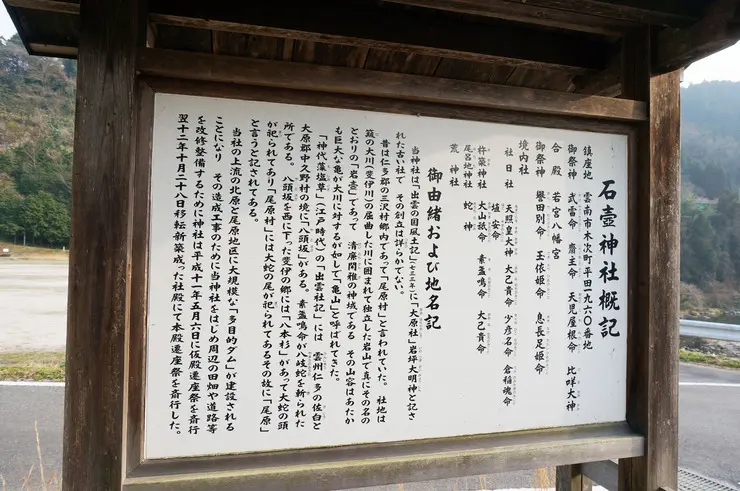 石壺神社概記
鎮座地 雲南市木次町平田一九六〇番地
御祭神 武雷命 齋主命 天児屋根命 比咩大神
合殿 若宮八幡宮
御祭神 譽田別命 玉依姫命 息長足姫命
境内社
社日社 天照皇大神 大己貴命 少彦名命 倉稲魂命
埴安命
杵築神社 大山祇命 素盞鳴命 大己貴命
尾呂地神社 蛇神
荒神社
御由緒および地名記
当神社は「出雲の国風土記」(七三三年)に「大原社」岩坪大明神と記さ
れた古い社で その創立は詳らかでない。
昔は仁多郡の三沢村郷内であって「尾原村」と言われていた。 社地は
簸の大川(斐伊川)の屈曲した川に囲まれて独立した岩山で真にその名の
とおりの「岩壺」であって 清廉閑雅の神域である その山容はあたか
も巨大な亀が大川に対するが如しで「亀山」と呼ばれてきた。
「神代藻塩草」(江戸時代)の「出雲社記」には 雲州仁多の佐白と
大原郡中久野村の境に「八頭坂」がある。 素盞鳴命が八岐蛇を斬られた
所である。 八頭坂を西に下った斐伊の郷には「八本杉」があって大蛇の頭
が祀られてあり「尾原村」には大蛇の尾が祀られてあるその故に「尾原」
と言うと記されてある。
当社の上流の北原と尾原地区に大規模な「多目的ダム」が建設される
ことになり その造成工事のために当神社をはじめ周辺の田畑や道路等
を改修整備するために神社は平成十一年五月六日に仮殿遷座祭を斎行
翌十二年十月二十八日移転新築成った社殿にて本殿遷座祭を斎行した。